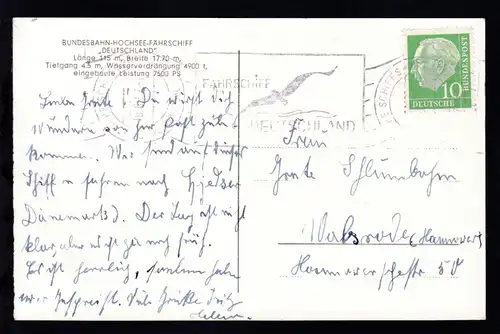 BUNDESBAHN-HOCHSEE-FÄHRSCHIFF
„DEUTSCHLAND"
Länge 115 m, Breite 17.70 m,
Tiefgang 4.5 m, Wasserverdrängung 4900 t,
eingebaute Leistung 7500 PS
FÄHRSCHIFF
DEUTSCHLAND
DEUTSCHE
BUNDESPOST
10
Liebe Grete! Du wirst dich
wundern von her Post zu be-
kommen. Wir sind auf dieser
Schiff u fahren nach Gjedser
Dänemark). Der Tag ist nicht
klar, aber es ist ja noch früh.
Es ist herrlich, haben
Viele Grüße Fritz
Frau
Grete Schlumbohm
Walsrode (Hannover)
Hannoverschestr 50